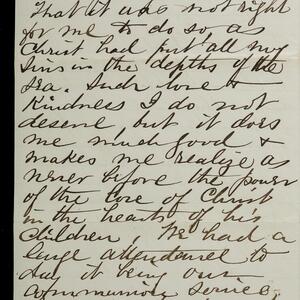 That it was not right
for me to do so, as
Christ had put all my
Sins in the depths of the
Sea. Such love &
Kindness I do not
deserve but it does
me much good &
makes me realize as
never before the power
of the love of Christ
in the hearts of his
Children We had a
large attendance to
day it being our
Communion service,